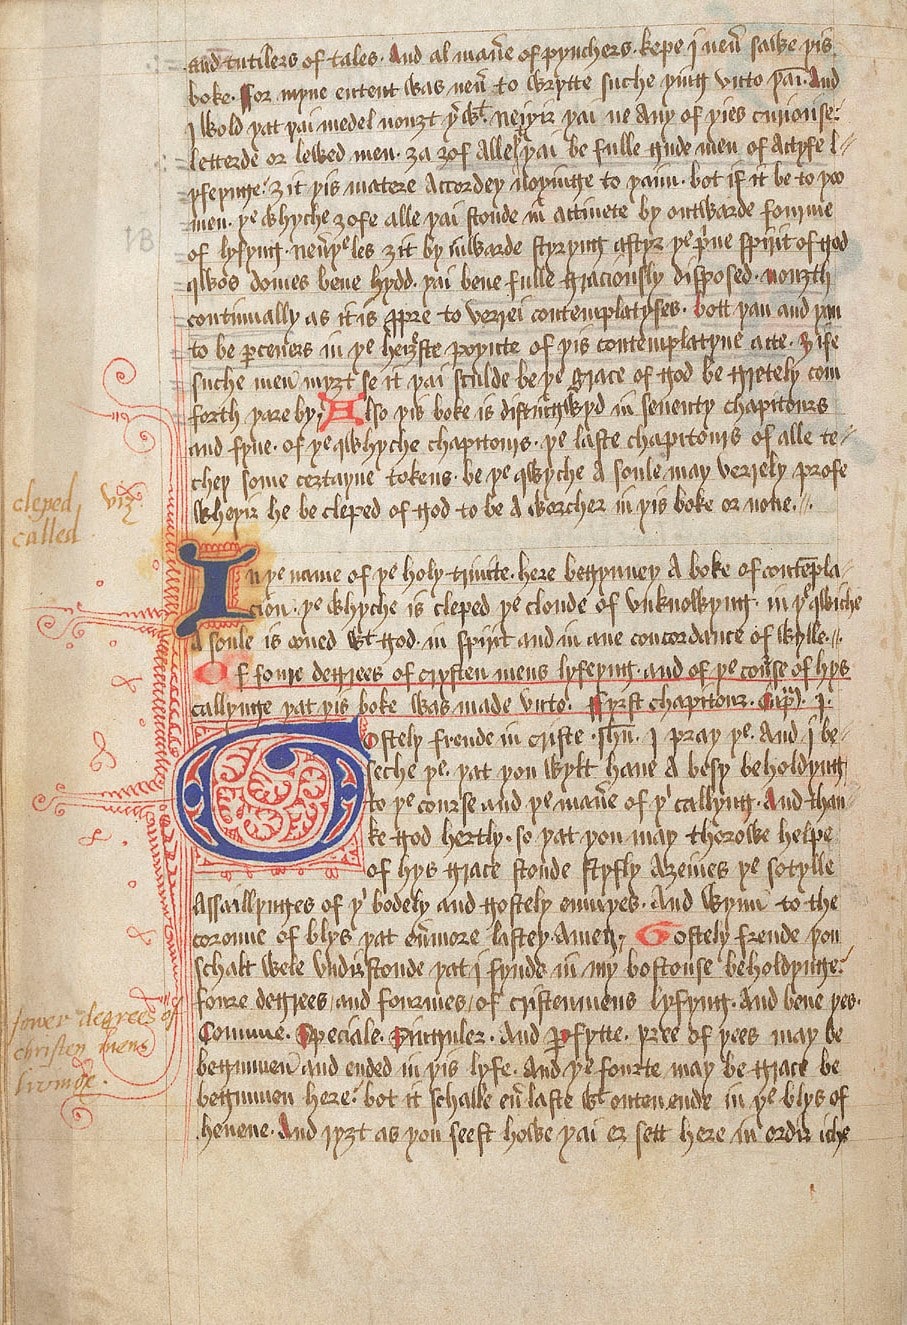 and tutilers of tales. And al man̄e of pynchers. kepe j neu͛ sawe yis
boke. For myne entent was neu͛ to wrytte suche ying vnto yai. And
j wold yat yai medel nouȝt yͬ wᵗ. neiyir yai ne Any of yies curiouse
letterde or lewed men. ȝa ȝof alle yai be fulle gude men of Actyfe l-
yfeynge. ȝit yis matere Accordey noyinge to yaim. bot if it be to yoo
men. ye whyche ȝofe alle yai stonde in actiuete by outwarde fourme
of lyfyng. neu͛yeles ȝit by inwarde styryng aftyr ye p͛ue spirit of god
qwos domes bene hydd. yai bene fulle graciously disposed. nouȝth
continually as it is ꝓpre to verrei contemplatyfes. bott yan and yan
to be ꝑceners in ye heiȝste poyinte of yis contemplatyue acte. ȝ ife
suche men myȝt se it yai sculde be ye grace of god be gretely com
forth yare by. Also yis boke is distingwyd in seuenty chapitours
and fyue. of ye qwhyche chapitours. ye laste chapitours of alle te-
chey some certayne tokens. be ye qwyche A soule may verrely profe
wheyir he be cleped of god to be a worcher in yis boke or none.
cleped viz
called
In ye name of ye holy trinite. here begynney A boke of contēpla-
cion. ye whyche is cleped ye cloude of vnknowyng. in yᵉ qwiche
A soule is oned wᵗ god. in spirit and in ane concordance of wylle.
Of foure degrees of crysten mens lyfeyng. and of ye course of hys
callynge yat yis boke was made vnto. Fyrst chapitour. Cap̄. j.
Gostely frende in criste ih̄u. j pray ye. And j be-
seche ye. yat you wylt haue A besy beholdyng
to ye course and ye man̄e of yͥ callyng. And than-
ke god hertly. so yat you may thorowe helpe
of hys grace stonde styfly Aȝeines ye sotylle
Assaillynges of yͥ bodely and gostely enmyes. And wynn to the
coroune of blys yat eu͛more lastey. Amen. Gostely frende you
schalt wele vndirstonde yat j fynde in my bostouse beholdynge
foure degrees and fourmes of cristenmens lyfyng. And bene yes.
Comune. Speciale. Singuler. And Ꝑfytte. yree of yees may be
begunnen and ended in yis lyfe. And ye fourte may be grace be
begunnen here. bot it schalle eu͛ laste wᵗ outen ende in yᵉ blys of
heuene. And ryȝt as you seest howe yai er sett here in ordir iche
fower degrees of
christen mens
livinge.